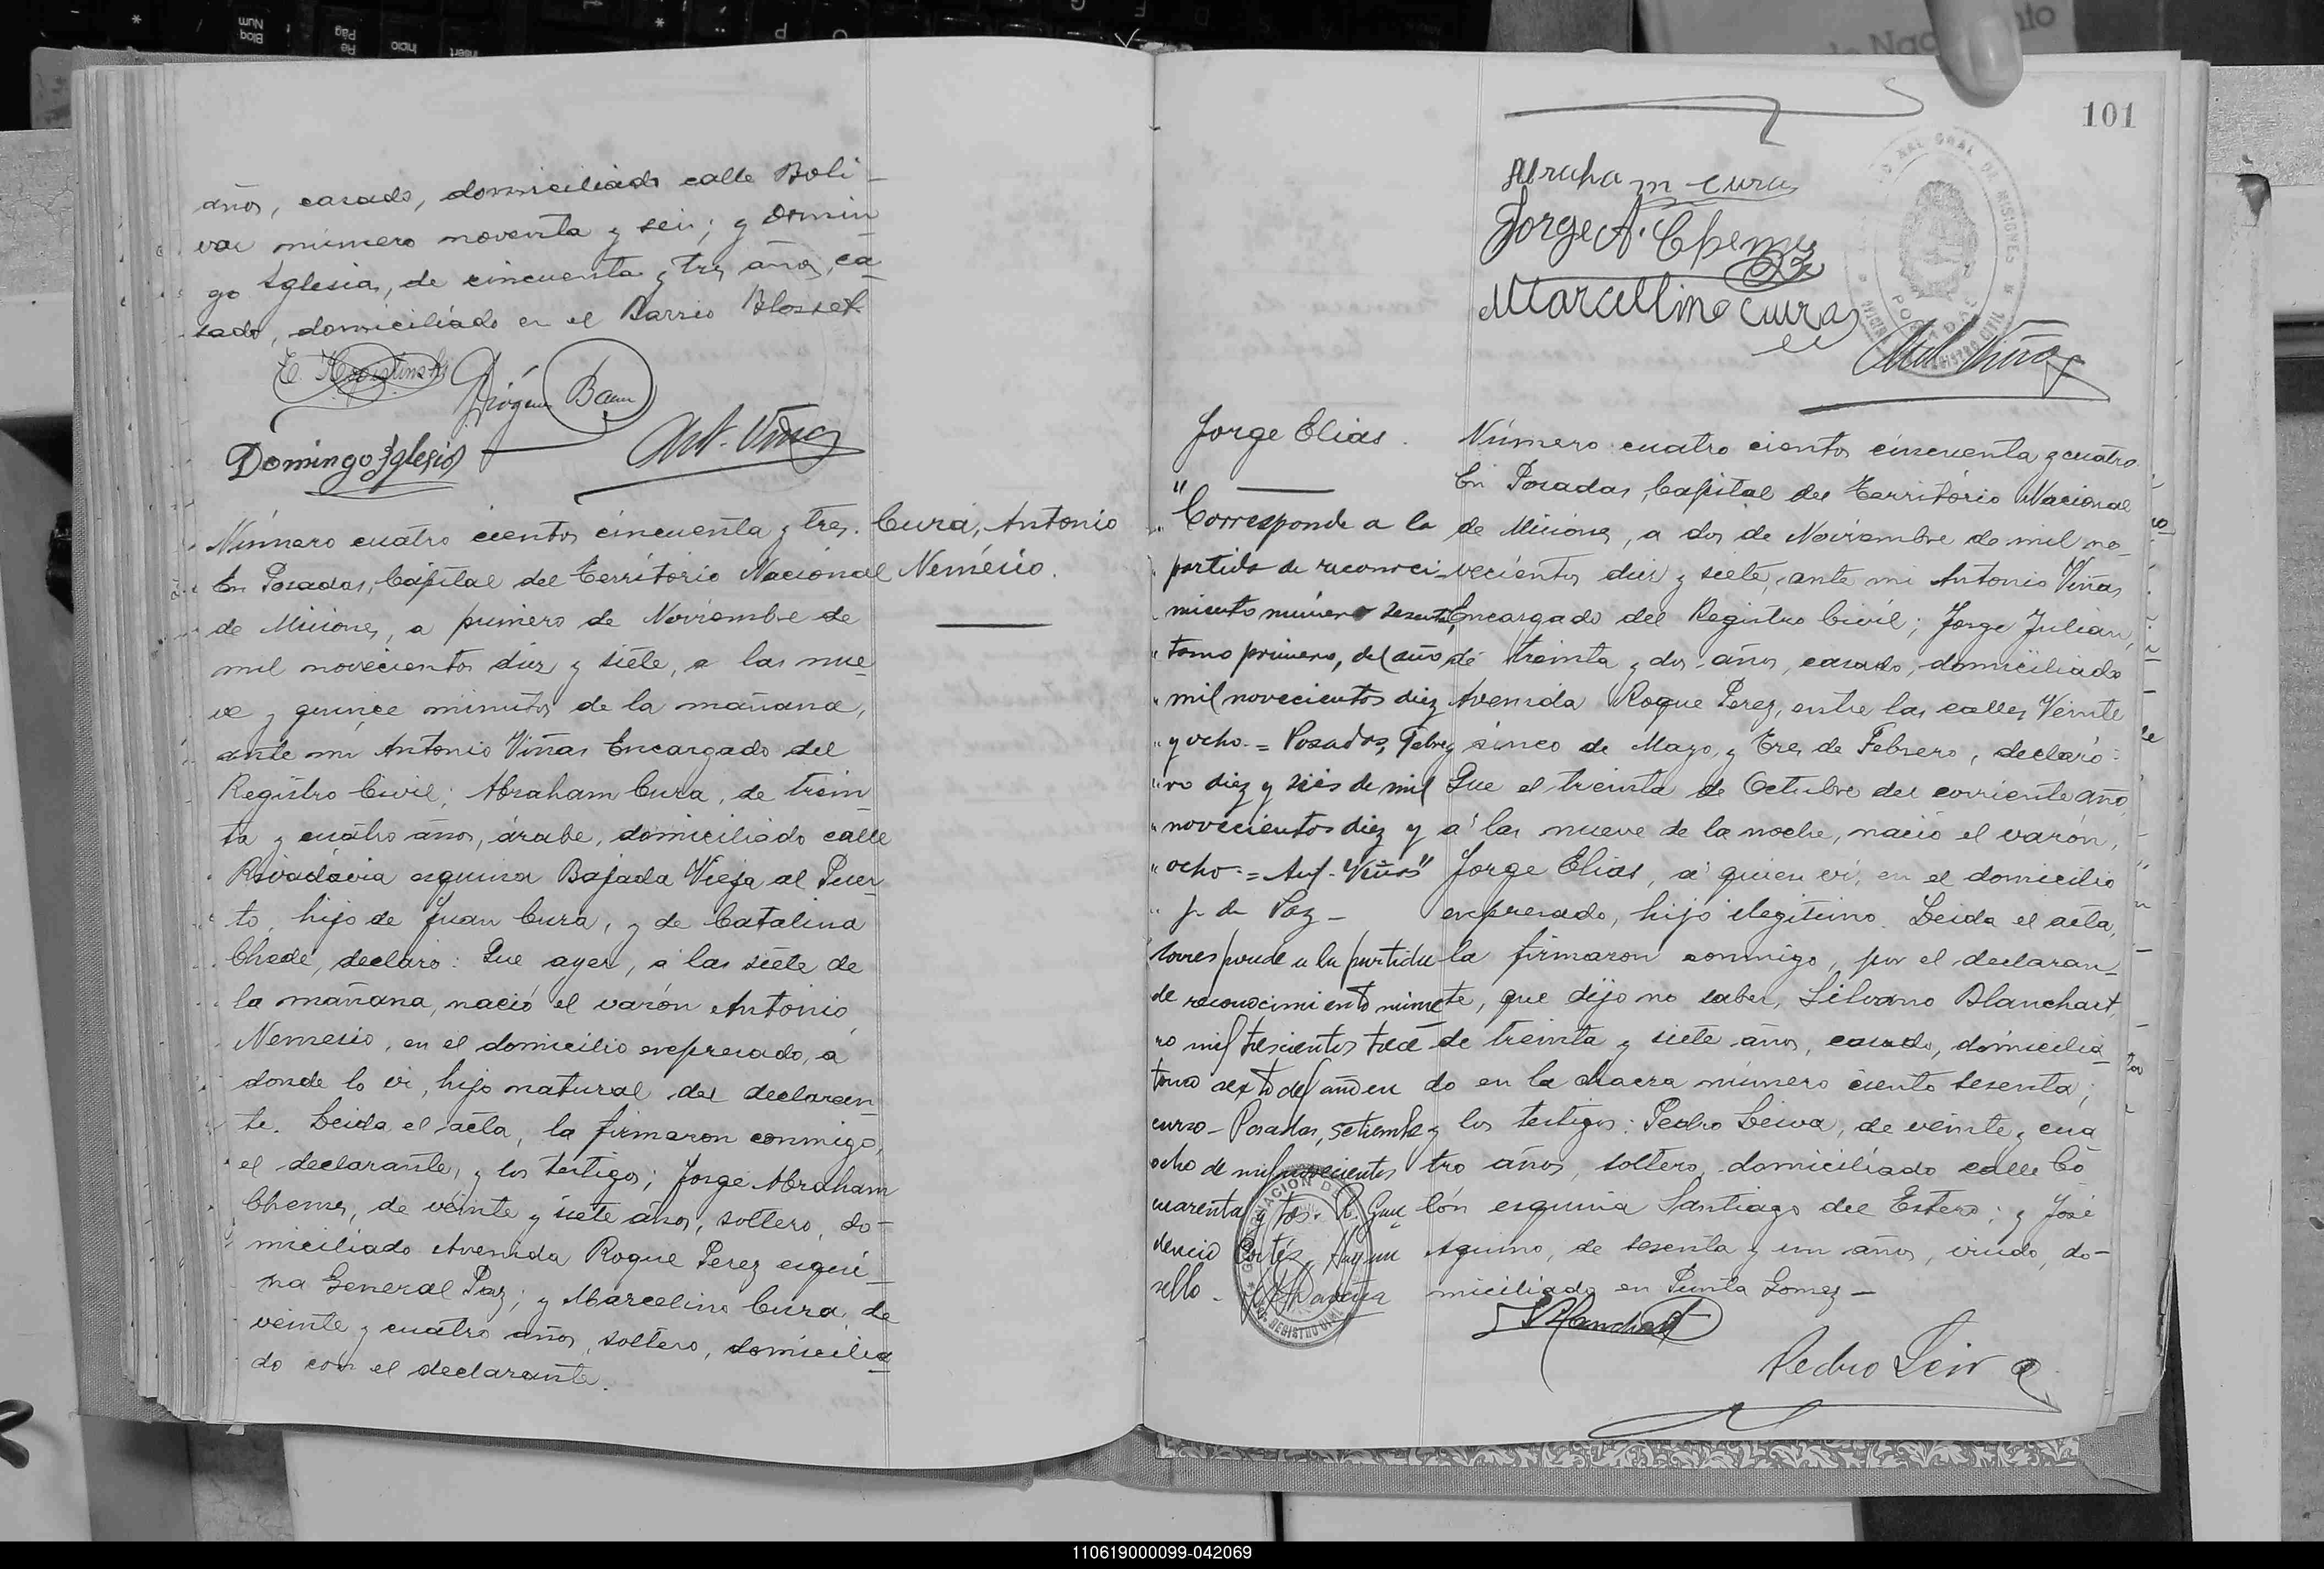 años, casado, domiciliado calle Boli-
var número noventa y seis; y Domin
go Iglesias, de cincuenta y tres años, ca-
sado, domiciliado en el Barrio Blosset
Domingo Iglesias
Ant. Viñas
Número cuatro cientos cincuenta y tres.
En Posadas, Capital del Territorio Nacional
de Misiones, a primero de Noviembre de
mil novecientos diez y siete, a las nue-
ve y quince minutos de la mañana,
ante mi Antonio Viñas Encargado del
Registro Civil; Abraham Cura, de trein-
ta y cuatro años, árabe, domiciliado calle
Rivadavia esquina Bajada Vieja al Puer
to, hijo de Juan Cura, y de Catalina
Chede, declaró: Que ayer, a las siete de
la mañana, nació el varón Antonio
Nemesio, en el domicilio expresado, a
donde lo vi, hijo natural del declaran-
te. Leida el acta, la firmaron conmigo,
el declarante, y los testigos; Jorge Abraham
Chemes, de veinte y siete años, soltero, do-
miciliado Avenida Roque Perez esqui-
na General Paz; y Marcelino Cura, de
veinte y cuatro años, soltero, domicilia-
do con el declarante.
Cura, Antonio
Nemésio.
101
Abraham Cura
Jorge A. Chemes
Marcellino Cura
Ant. Viñas
Jorge Elias.
"Corresponde a la
" partida de reconoci-
" miento número sesenta,
" tomo primero, del año
" mil novecientos diez
" y ocho.= Posadas, Febre
" ro diez y seis de mil
" novecientos diez y
" ocho.= Ant. Viñas"
" J. de Paz -
Corresponde a la partida
de reconocimiento núme
ro mil trescientos trece
tomo sexto del año en
curso - Posadas, setiembre
ocho de mil novecientos
cuarenta y tres. R. Gau
dencio Cortéz. Hay un
sello -
Número cuatro cientos cincuenta y cuatro.
En Posadas, Capital del Territorio Nacional
de Misiones, a dos de Noviembre de mil no-
vecientos diez y siete, ante mi Antonio Viñas
Encargado del Registro Civil; Jorge Julian,
de treinta y dos años, casado, domiciliado
Avenida Roque Perez, entre las calles Veinte
y sinco de Mayo, y Tres de Febrero, declaró:
Que el treinta de Octubre del corriente año,
a las nueve de la noche, nació el varón,
Jorge Elias, a quien vi, en el domicilio
expresado, hijo ilegitimo. Leida el acta,
la firmaron conmigo, por el declaran-
te, que dijo no saber, Silvano Blanchart,
de treinta y siete años, casado, domicilia-
do en la chacra número ciento sesenta;
y los testigos: Pedro Leiva, de veinte y cua
tro años, soltero, domiciliado calle Co
lón esquina Santiago del Estero; y José
Aquino, de sesenta y un años, viudo, do-
miciliado en Punta Gomez -
S Blanchart
Pedro Leiva
110619000099-042069